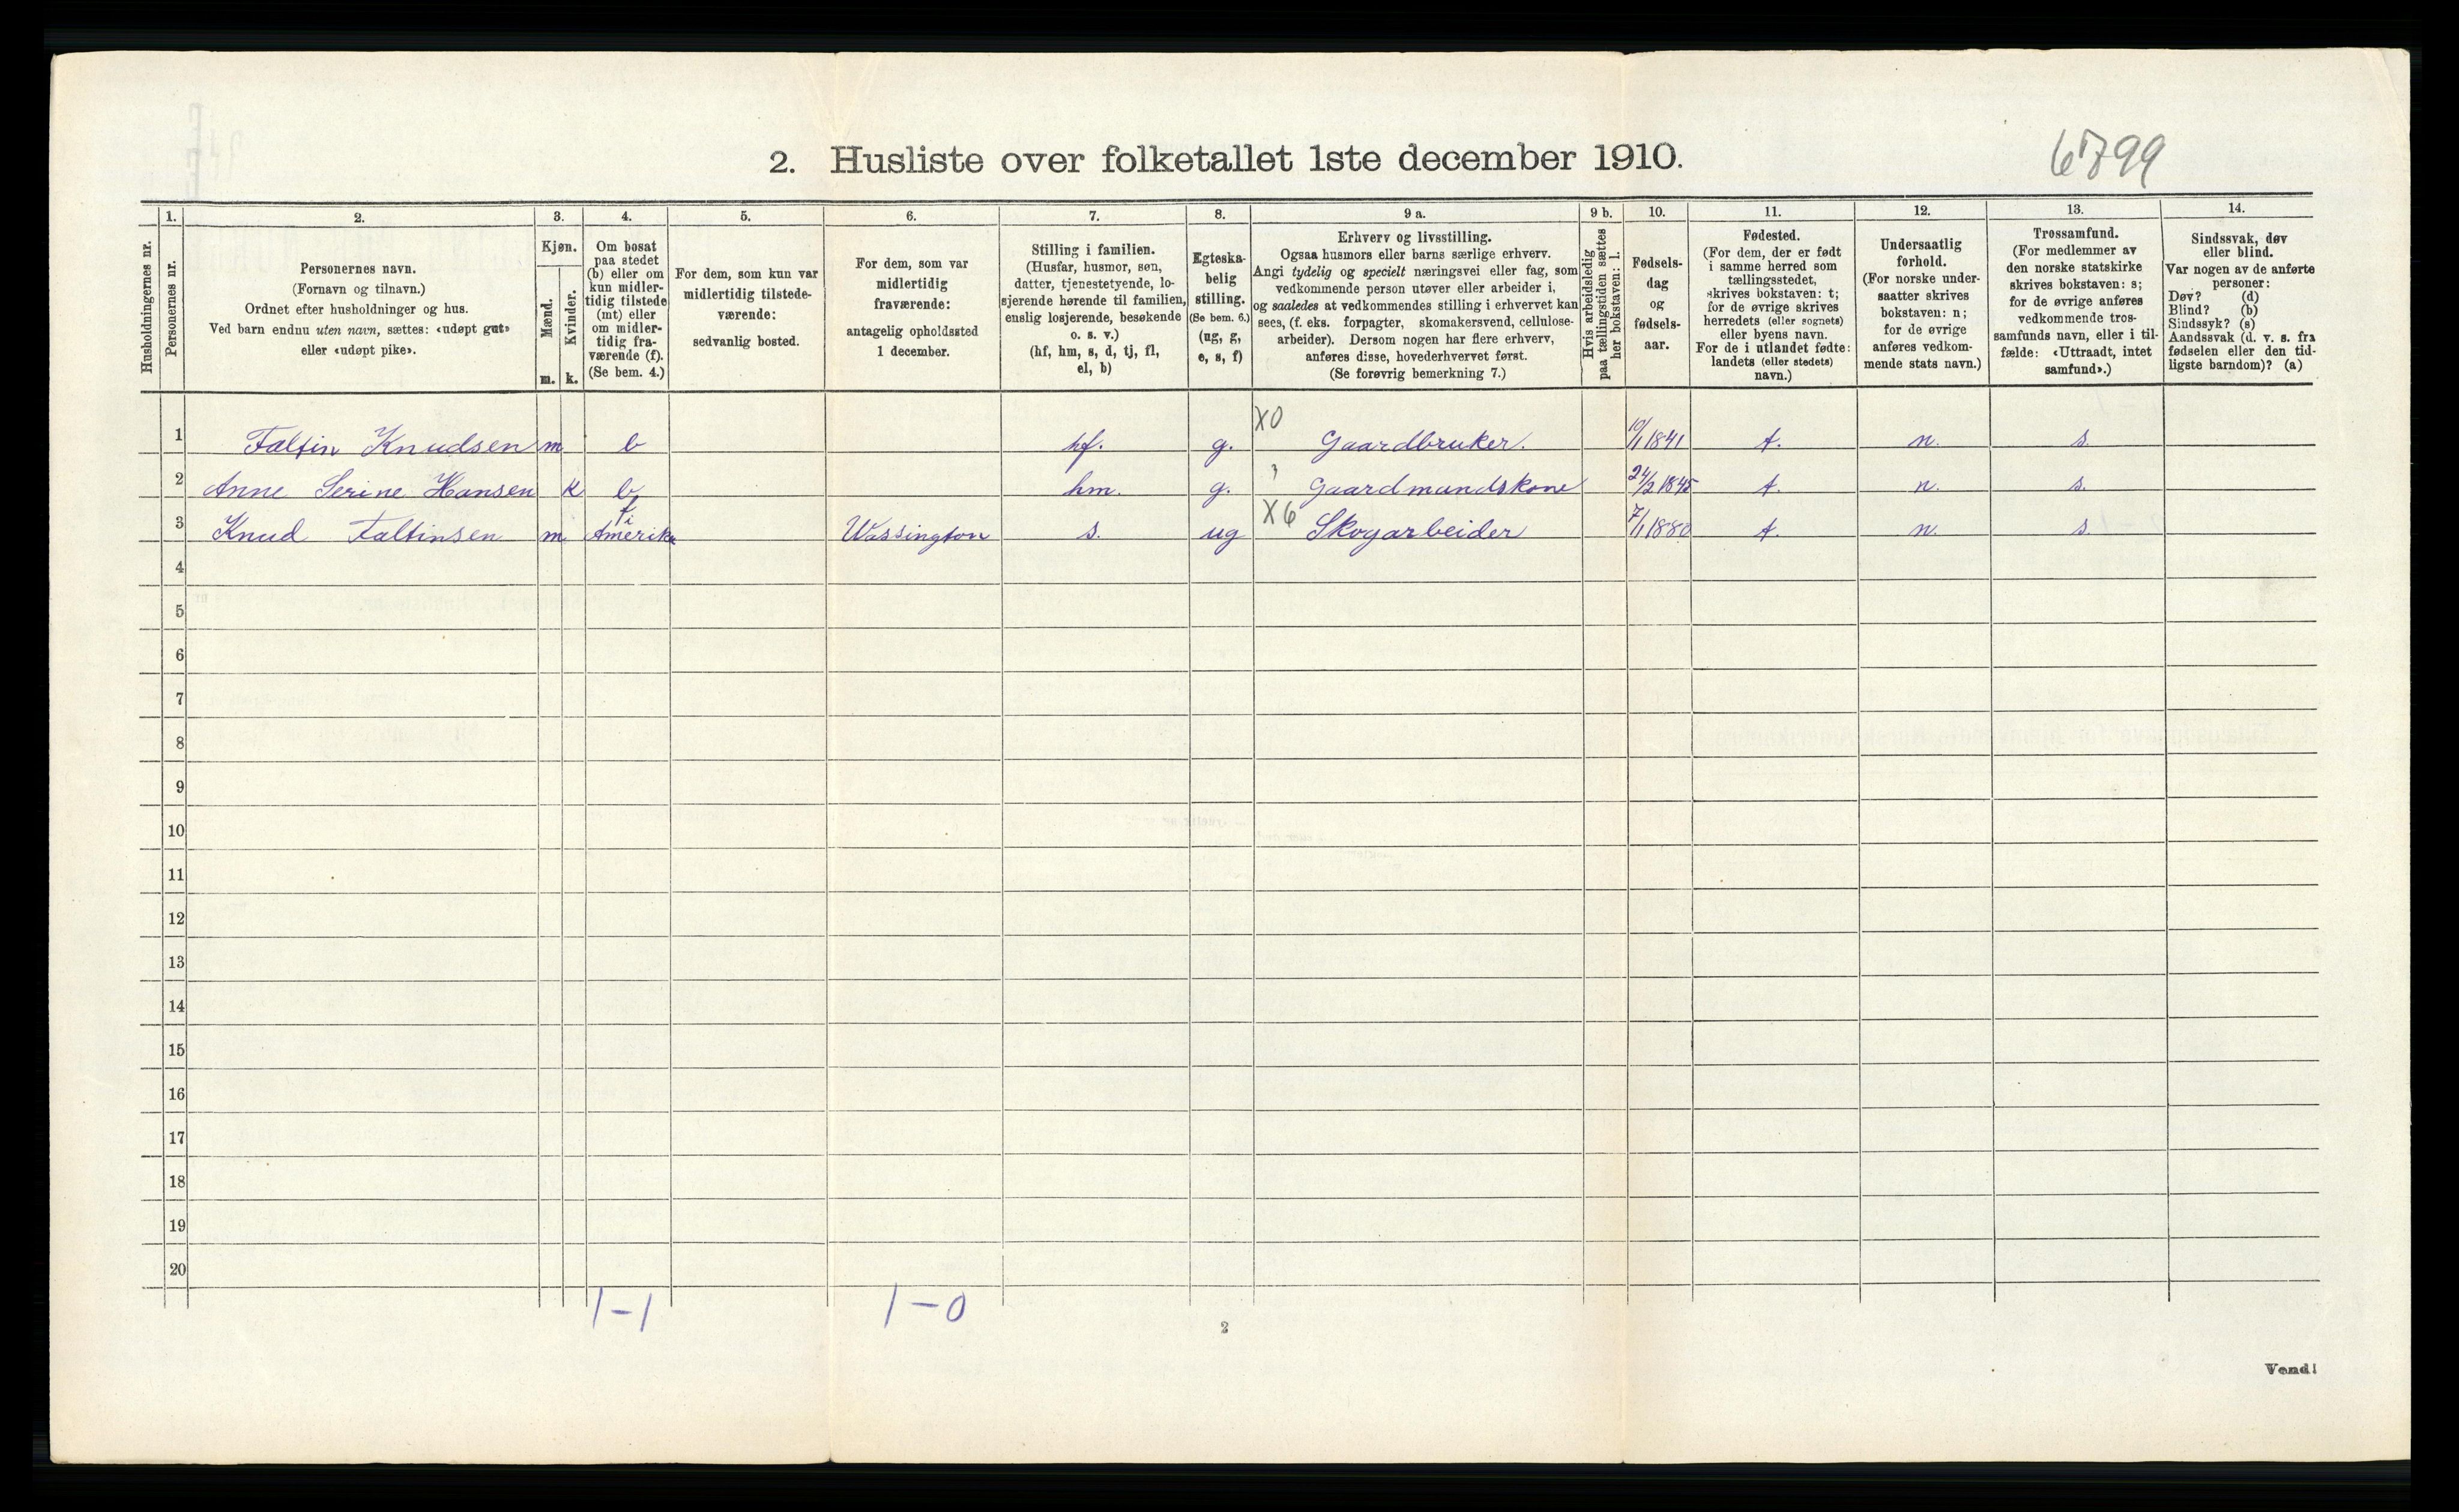 2. Husliste over folketallet 1ste december 1910.
6799
Husholdningernes nr.
1.
Personernes nr.
2.
Personernes navn.
(Fornavn og tilnavn.)
Ordnet efter husholdninger og hus.
Ved barn endnu uten navn, sættes: «udøpt gut»
eller «udøpt pike».
3.
Kjøn.
Mænd.
Kvinder.
m. k.
4.
Om bosat
paa stedet
(b) eller om
kun midler-
tidig tilstede
(mt) eller
om midler-
tidig fra-
værende (f).
(Se bem. 4.)
5.
For dem, som kun var
midlertidig tilstede-
værende:
sedvanlig bosted.
6.
For dem, som var
midlertidig
fraværende:
antagelig opholdssted
1 december.
7.
Stilling i familien.
(Husfar, husmor, søn,
datter, tjenestetyende, lo-
sjerende hørende til familien,
enslig losjerende, besøkende
o. s. v.)
(hf, hm, s, d, tj, fl,
el, b)
8.
Egteska-
belig
stilling.
(Se bem. 6.)
(ug, g,
e, s, f)
9 a.
Erhverv og livsstilling.
Ogsaa husmors eller barns særlige erhverv.
Angi tydelig og specielt næringsvei eller fag, som
vedkommende person utøver eller arbeider i,
og saaledes at vedkommendes stilling i erhvervet kan
sees, (f. eks. forpagter, skomakersvend, cellulose-
arbeider). Dersom nogen har flere erhverv,
anføres disse, hovederhvervet først.
(Se forøvrig bemerkning 7.)
9 b.
Hvis arbeidsledig
paa tællingstiden sættes
her bokstaven: l.
10.
Fødsels-
dag
og
fødsels-
aar.
11.
Fødested.
(For dem, der er født
i samme herred som
tællingsstedet,
skrives bokstaven: t;
for de øvrige skrives
herredets (eller sognets)
eller byens navn.
For de i utlandet fødte:
landets (eller stedets)
navn.)
12.
Undersaatlig
forhold.
(For norske under-
saatter skrives
bokstaven: n;
for de øvrige
anføres vedkom-
mende stats navn.)
13.
Trossamfund.
(For medlemmer av
den norske statskirke
skrives bokstaven: s;
for de øvrige anføres
vedkommende tros-
samfunds navn, eller i til-
fælde: «Uttraadt, intet
samfund».)
14.
Sindssvak, døv
eller blind.
Var nogen av de anførte
personer:
Døv? (d)
Blind? (b)
Sindssyk? (s)
Aandssvak (d. v. s. fra
fødselen eller den tid-
ligste barndom)? (a)
1 Faltin Knudsen m b hf. g. X0 Gaardbruker. 10/1 1841 t. n. s.
2 Anne Serine Hansen k b hm. g. Gaardmandskone 24/2 1845 t. n. s.
3 Knud Faltinsen m f i Amerika Wassington s. ug X6 Skogarbeider 7/1 1880 t. n. s.
4
5
6
7
8
9
10
11
12
13
14
15
16
17
18
19
20
1-1 1-0
2
Vend!